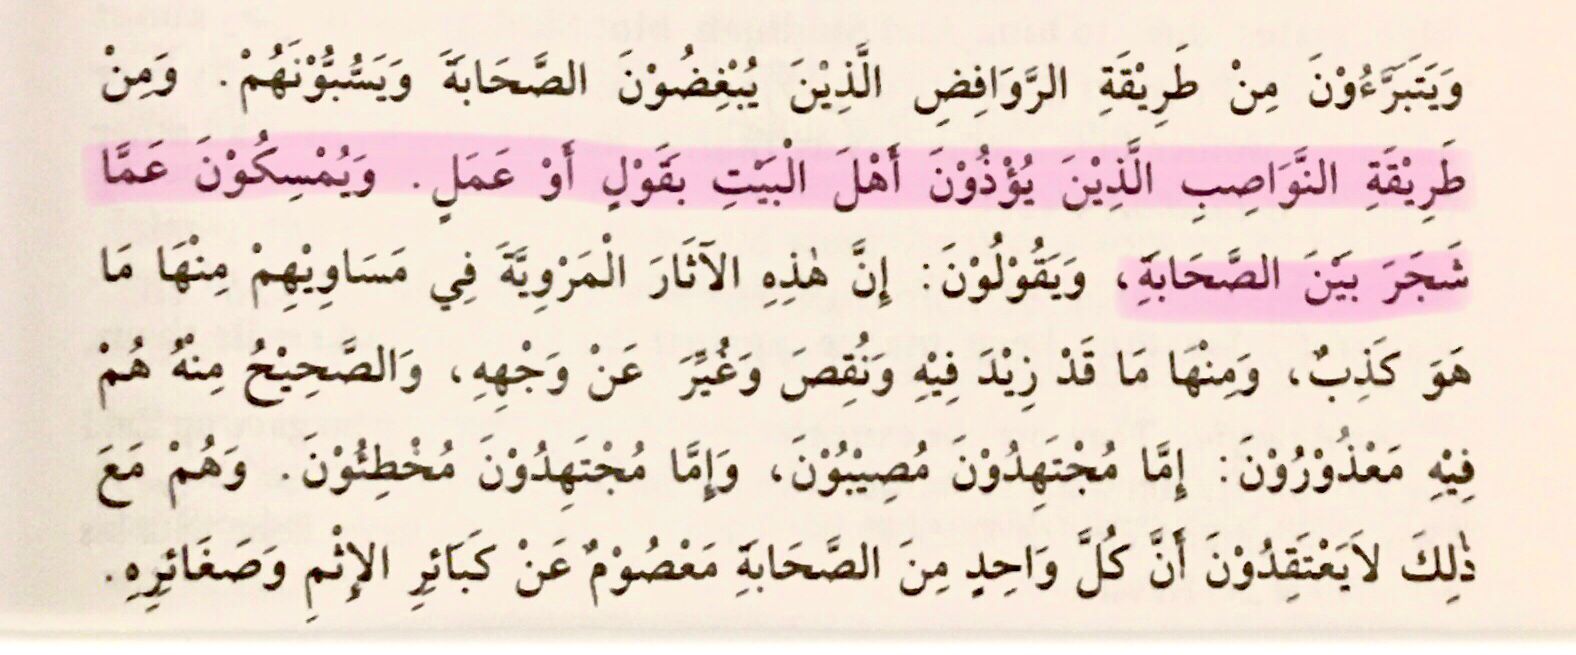 وَيَتَبَرَّءُوْنَ مِنْ طَرِيْقَةِ الرَّوَافِضِ الَّذِيْنَ يُبْغِضُوْنَ الصَّحَابَةَ وَيَسُبُّوْنَهُمْ. وَمِنْ
طَرِيْقَةِ النَّوَاصِبِ الَّذِيْنَ يُؤْذُوْنَ أَهْلَ الْبَيْتِ بِقَوْلٍ أَوْ عَمَلٍ. وَيُمْسِكُوْنَ عَمَّا
شَجَرَ بَيْنَ الصَّحَابَةِ، وَيَقُوْلُوْنَ: إِنَّ هٰذِهِ الآثَارَ الْمَرْوِيَّةَ فِي مَسَاوِيْهِمْ مِنْهَا مَا
هَوَ كَذِبٌ، وَمِنْهَا مَا قَدْ زِيْدَ فِيْهِ وَنُقِصَ وَغُيِّرَ عَنْ وَجْهِهِ، وَالصَّحِيْحُ مِنْهُ هُمْ
فِيْهِ مَعْذُوْرُوْنَ: إِمَّا مُجْتَهِدُوْنَ مُصِيْبُوْنَ، وَإِمَّا مُجْتَهِدُوْنَ مُخْطِئُوْنَ. وَهُمْ مَعَ
ذٰلِكَ لاَيَعْتَقِدُوْنَ أَنَّ كُلَّ وَاحِدٍ مِنَ الصَّحَابَةِ مَعْصُوْمٌ عَنْ كَبَائِرِ الإِثْمِ وَصَغَائِرِهِ.